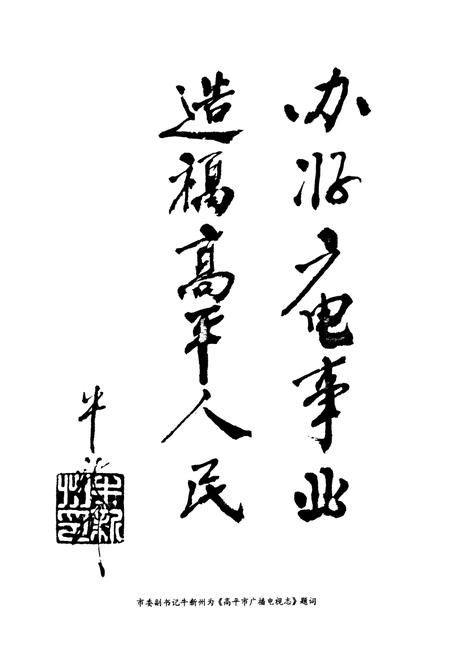 办好广电事业
造福高平人民
牛新州
牛新州印
市委副书记牛新州为《高平市广播电视志》题词